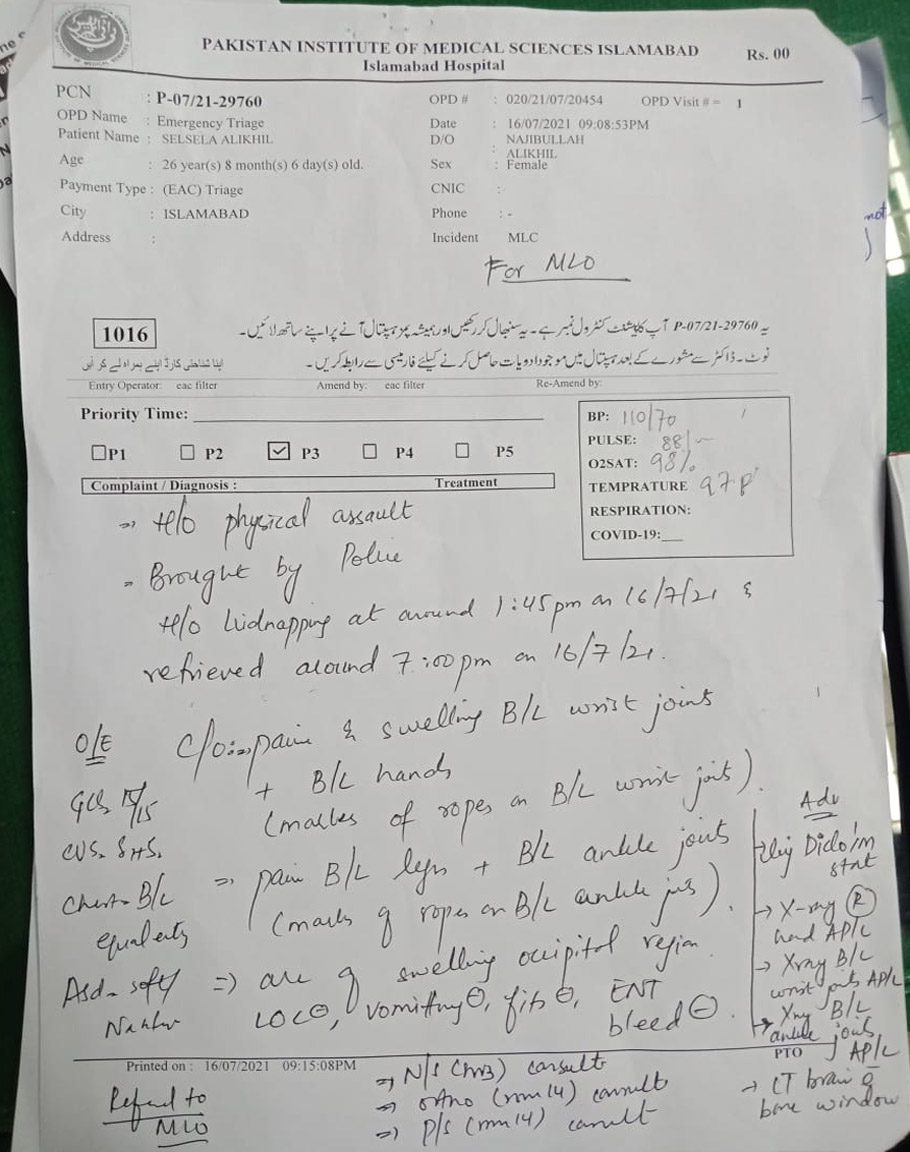 PAKISTAN INSTITUTE OF MEDICAL SCIENCES ISLAMABAD
Islamabad Hospital
Rs. 00
PCN : P-07/21-29760
OPD # : 020/21/07/20454
OPD Visit # = 1
OPD Name : Emergency Triage
Date : 16/07/2021 09:08:53PM
Patient Name : SELSELA ALIKHIL
D/O : NAJIBULLAH ALIKHIL
Age : 26 year(s) 8 month(s) 6 day(s) old.
Sex : Female
Payment Type : (EAC) Triage
CNIC :
City : ISLAMABAD
Phone : -
Address :
Incident MLC
For MLO
1016
یہ P-07/21-29760 آپ کا پیشنٹ کنٹرول نمبر ہے۔ یہ سنبھال کر رکھیں اور ہمیشہ پمز ہسپتال آنے پر اپنے ساتھ لائیں۔
نوٹ۔ ڈاکٹر سے مشورے کے بعد ہسپتال میں موجود ادویات حاصل کرنے کیلئے فارمیسی سے رابطہ کریں۔
اپنا شناختی کارڈ اپنے ہمراہ لے کر آئیں
Entry Operator: eac filter
Amend by: eac filter
Re-Amend by:
Priority Time:
P1 P2 P3 P4 P5
BP: 110/70
PULSE: 88/
O2SAT: 98%
TEMPRATURE 97F
RESPIRATION:
COVID-19:
Complaint / Diagnosis : Treatment
⇒ H/O physical assault
= Brought by Police
H/o kidnapping at around 1:45pm on 16/7/21 &
retrieved around 7:00pm on 16/7/21.
O/E
c/o:⇒ pain & swelling B/L wrist joints
+ B/L hands
GCS 15/15
(marks of ropes on B/L wrist joints).
CVS. S1+S2
⇒ pain B/L legs + B/L ankle joints
Chest- B/L
(marks of ropes on B/L ankle jts).
⇒ area of swelling occipital region
Abd- soft/
LOC⊖, vomitting⊖, fits⊖, ENT
bleed ⊖.
Adv
Inj Diclo i/m
stat
→ X-ray (R)
hand AP/L
→ Xray B/L
wrist joints AP/L
→ Xray B/L
ankle joints
AP/L
PTO
→ CT brain c̄
bone window
Printed on : 16/07/2021 09:15:08PM
⇒ N/S consult
⇒ ortho (rm 14) consult
⇒ P/S (rm 14) consult
Referred to
MLO
not